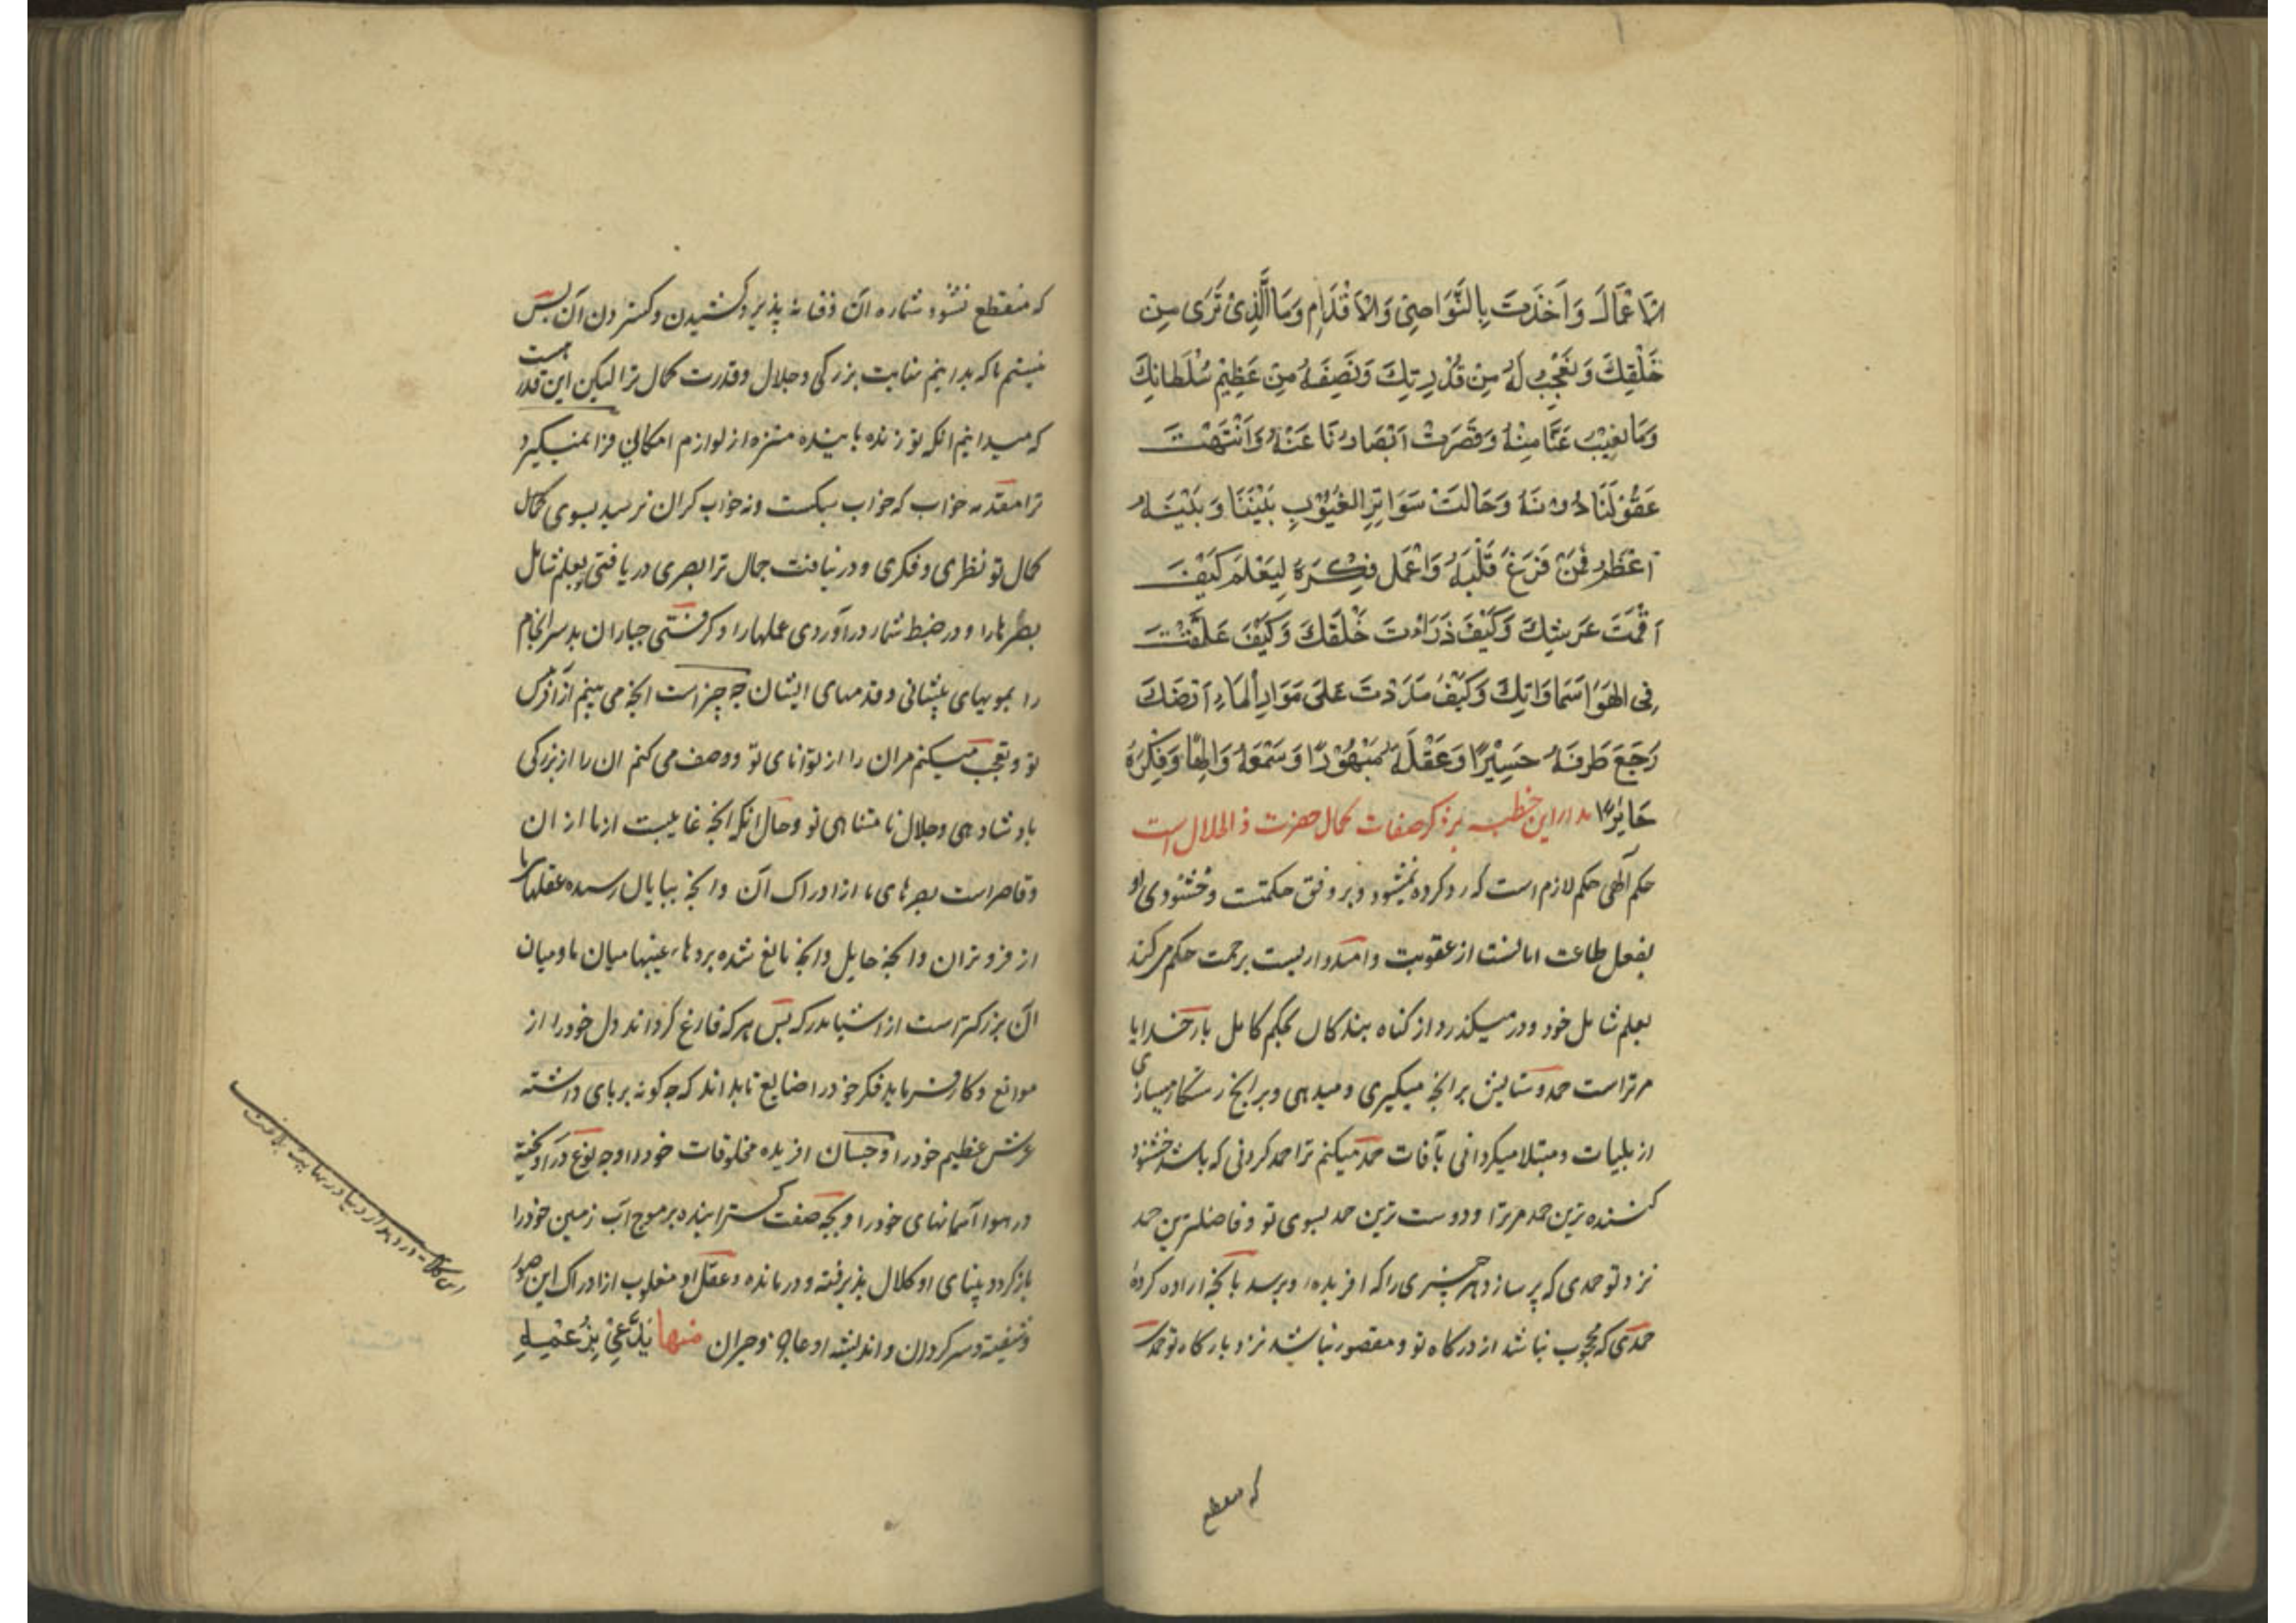 الاَعْمَالَ وَاَخَذْتَ بِالنَّوَاصِیْ وَالْاَقْدَامِ وَمَا الَّذِیْ تَرَی مِنْ
خَلْقِكَ وَنَعْجِبُ لَهُ مِنْ قُدْرَتِكَ وَنَصِفَهُ مِنْ عَظِیْمِ سُلْطَانِكَ
وَمَا یَغِیْبُ عَنَّا مِنْهُ وَقَصَرَتْ اَبْصَارُنَا عَنْهُ وَانْتَهَتْ
عَقُوْلَنَا دُوْنَهُ وَحَالَتْ سَوَاتِرُ الغُیُوْبِ بَیْنَنَا وَبَیْنَهُ
اَعْظَمُ فَمَنْ فَرَغَ قَلْبَهُ وَاَعْمَلَ فِكْرَهُ لِیَعْلَمَ كَیْفَ
اَقَمْتَ عَرْشِكَ وَكَیْفَ ذَرَاْتَ خَلْقَكَ وَكَیْفَ عَلَّقْتَ
فِی الهَوَاءِ سَمَاوَاتِكَ وَكَیْفَ مَدَدْتَ عَلَی مَوَارِ اْلمَاءِ اَرْضَكَ
رَجَعَ طَرْفَهُ حَسِیْرًا وَعَقْلَهُ مَبْهُوْرًا وَسَمْعَهُ وَالِهًا وَفِكْرُهُ
حَائِرًا مدار این خطبه بر ذکر صفات کمال حضرت ذو الجلال است
حکم آلهی حکم لازم است که رد کرده نمیشود و بر وفق حکمتت و خشنودی او
بفعل طاعت امانست از عقوبت و امیدواریست برحمت حکم میکند
بعلم شامل خود و درمیکذرد از کناه بندکان بحکم کامل بار خدایا
مر تراست حمد و ستایش بر انچه میکیری و میدهی و بر انچه رستکار میسازی
از بلیات و مبتلا میکردانی بآفات حمد میکنم ترا حمد کردنی که باشد خشنود
کننده ترین حمد مر ترا و دوست ترین حمد بسوی تو و فاضلترین حمد
نزد تو حمدی که پر سازد هر چیزی را که افریدهٔ و برسد بآنچه اراده کردهٔ
حمدی که محجوب نباشد از درکاه تو و مقصور نباشد نزد بارکاه تو حمدی
که منقطع
که منقطع نشود شماره آن و فنا نه پذیرد کشیدن و کستردن آن پس
نیستم ما که بدانیم نهایت بزرکی و جلال و قدرت کمال ترا لیکن این قدر هست
که میدانیم انکه تو زنده پاینده منزه از لوازم امکانی فرا نمیکیرد
ترا مقدمه خواب که خواب سبکست و نه خواب کران نرسید بسوی کمال
کمال تو نظری و فکری و در نیافت جمال ترا بصری دریافتی بعلم شامل
بصرها را و در ضبط شمار درآوردی عملها را و کرفتی جباران بد سرانجام
را بمویهای پیشانی و قدمهای ایشان چه چیز است انچه می بینم از آفرینش
تو و تعجب میکنم مران را از توانای تو و وصف می کنم ان را از بزرکی
بادشاهی و جلال نامتناهی تو و حال انکه انچه غایبست از ما از ان
و قاصر است بصرهای ما از ادراک آن و انچه بپایان رسیده عقلهای ما
از فروتر ان و انچه حایل و انچه مانع شده پردهای غیبها میان ما و میان
آن بزرکتر است از اشیاء مدرکه پس هر که فارغ کرداند دل خود را از
موانع و کار فرماید فکر خود را ضایع تا بداند که چکونه بر پای داشته
عرش عظیم خود را و چسان افریده مخلوقات خود را و چه نوع در آویخته
در هوا آسمانهای خود را و بچه صفت کسترانیده بر موج آب زمین خود را
باز کردد بینای او کلال پذیرفته و درمانده و عقل او مغلوب از ادراک این صور
و شیفته و سرکردان و اندیشه او عاجز و حیران منها یَدَّعِیْ بِزُعْمِهِ
این کلام در